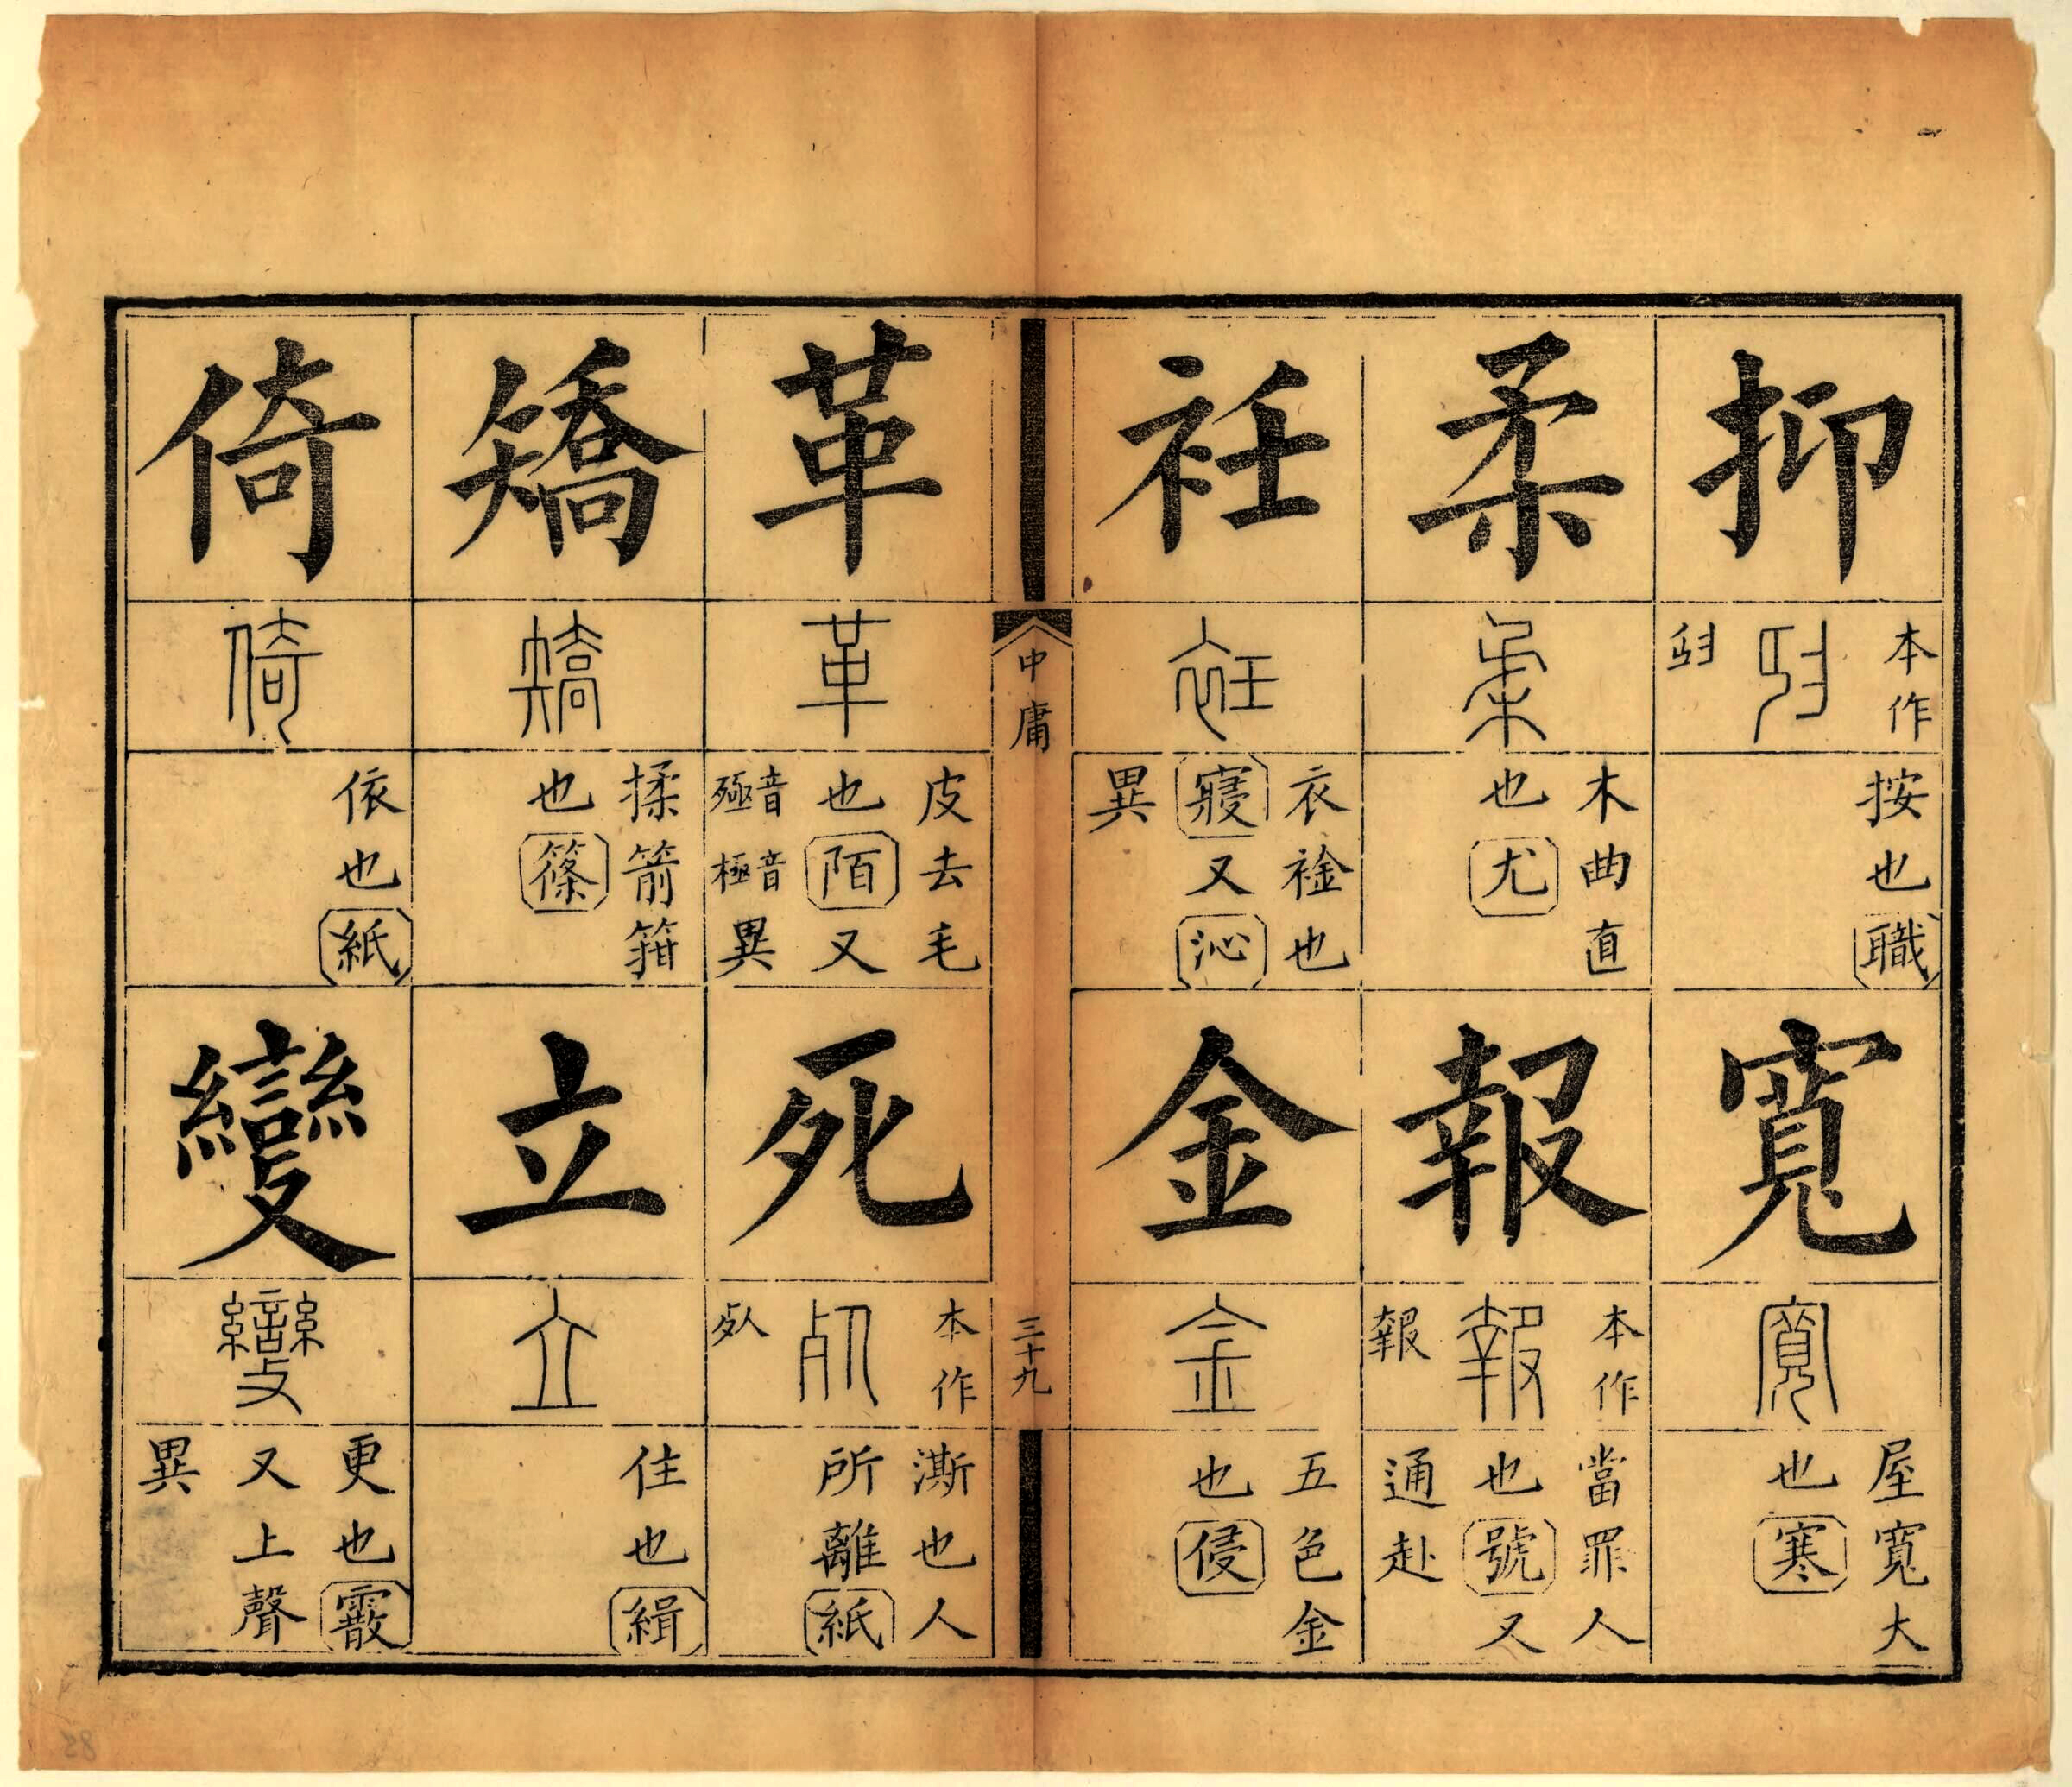 抑
本作
抑
按也職
寬
寬
屋寬大
也寒
柔
柔
木曲直
也尤
報
本作
報
報
當罪人
也號又
通赴
衽
衽
衣䘳也
寢又沁
異
金
金
五色金
也侵
中庸
三十九
革
革
皮去毛
也陌又
音殛音極異
死
本作
死
澌也人
所離紙
矯
矯
揉箭箝
也篠
立
立
住也緝
倚
倚
依也紙
變
變
更也霰
又上聲
異